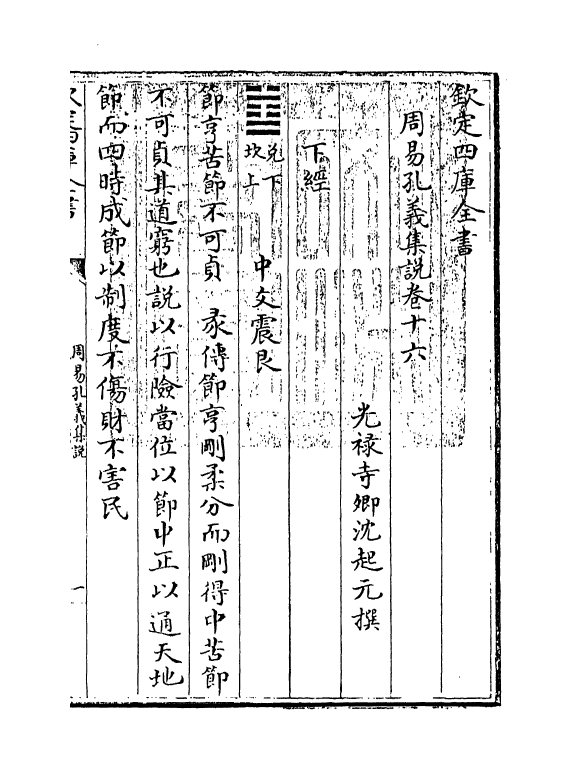 欽定四庫全書
周易孔義集説卷十六
光禄寺卿沈起元撰
下經
兌下
坎上
中爻震艮
節亨苦節不可貞　彖傳節亨剛柔分而剛得中苦節
不可貞其道窮也説以行險當位以節中正以通天地
節而四時成節以制度不傷財不害民
欽定四庫全書
周易孔義集説
一